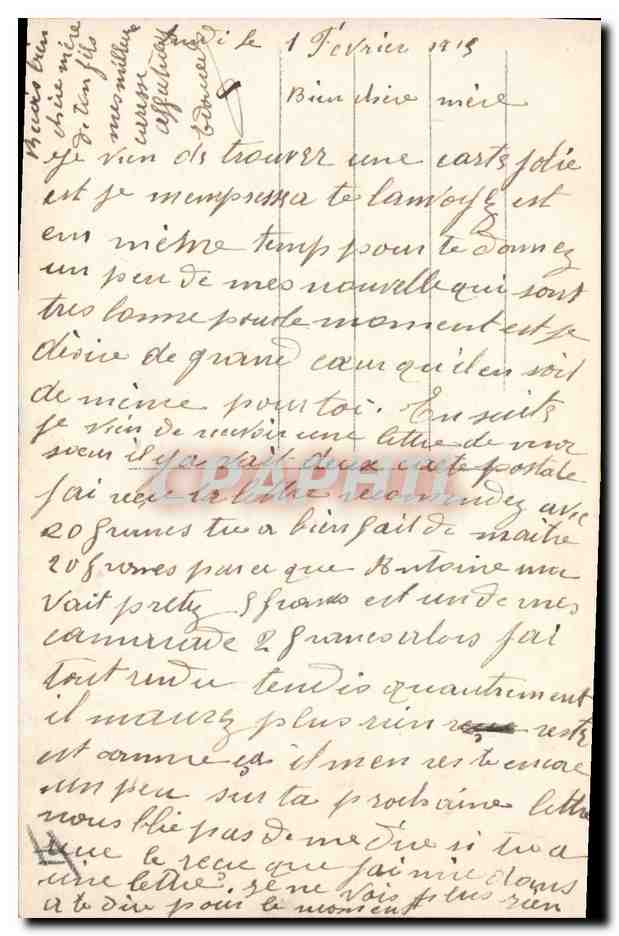 Lundi le 1 Février 1915
Bien chère mère
Je vien de trouver une carte jolie
est je mempressa te lanvoyez est
em même temp pour te donnez
un peu de mes nouvelle qui sont
tres bonne pour le moment est je
désire de grand cœur qu'il en soit
de même pour toi. En suite
je vien de recevoir une lettre de
sœur il y a vait deux carte postale
J'ai reçu la lettre recomendez avec
20 francs tu a bien fait de maître
20 francs parce que Antoine ma
vait pretez 5 francs est un de mes
camarade 2 francs alors j'ai
tout rendu tendis quautrement
il maurez plus rien reste
est comme ça il men reste encore
un peu sur ta prochaine lettre
nous blie pas de me dire si tu a
que le reçu que j'ai mie dans
une lettre. Je ne vois plus rien
a te dire pour le moment
Baisé bien
chère mère
de ton fils
mes meilleure
caresse
affectueuse
Edouard
CPAPHIL